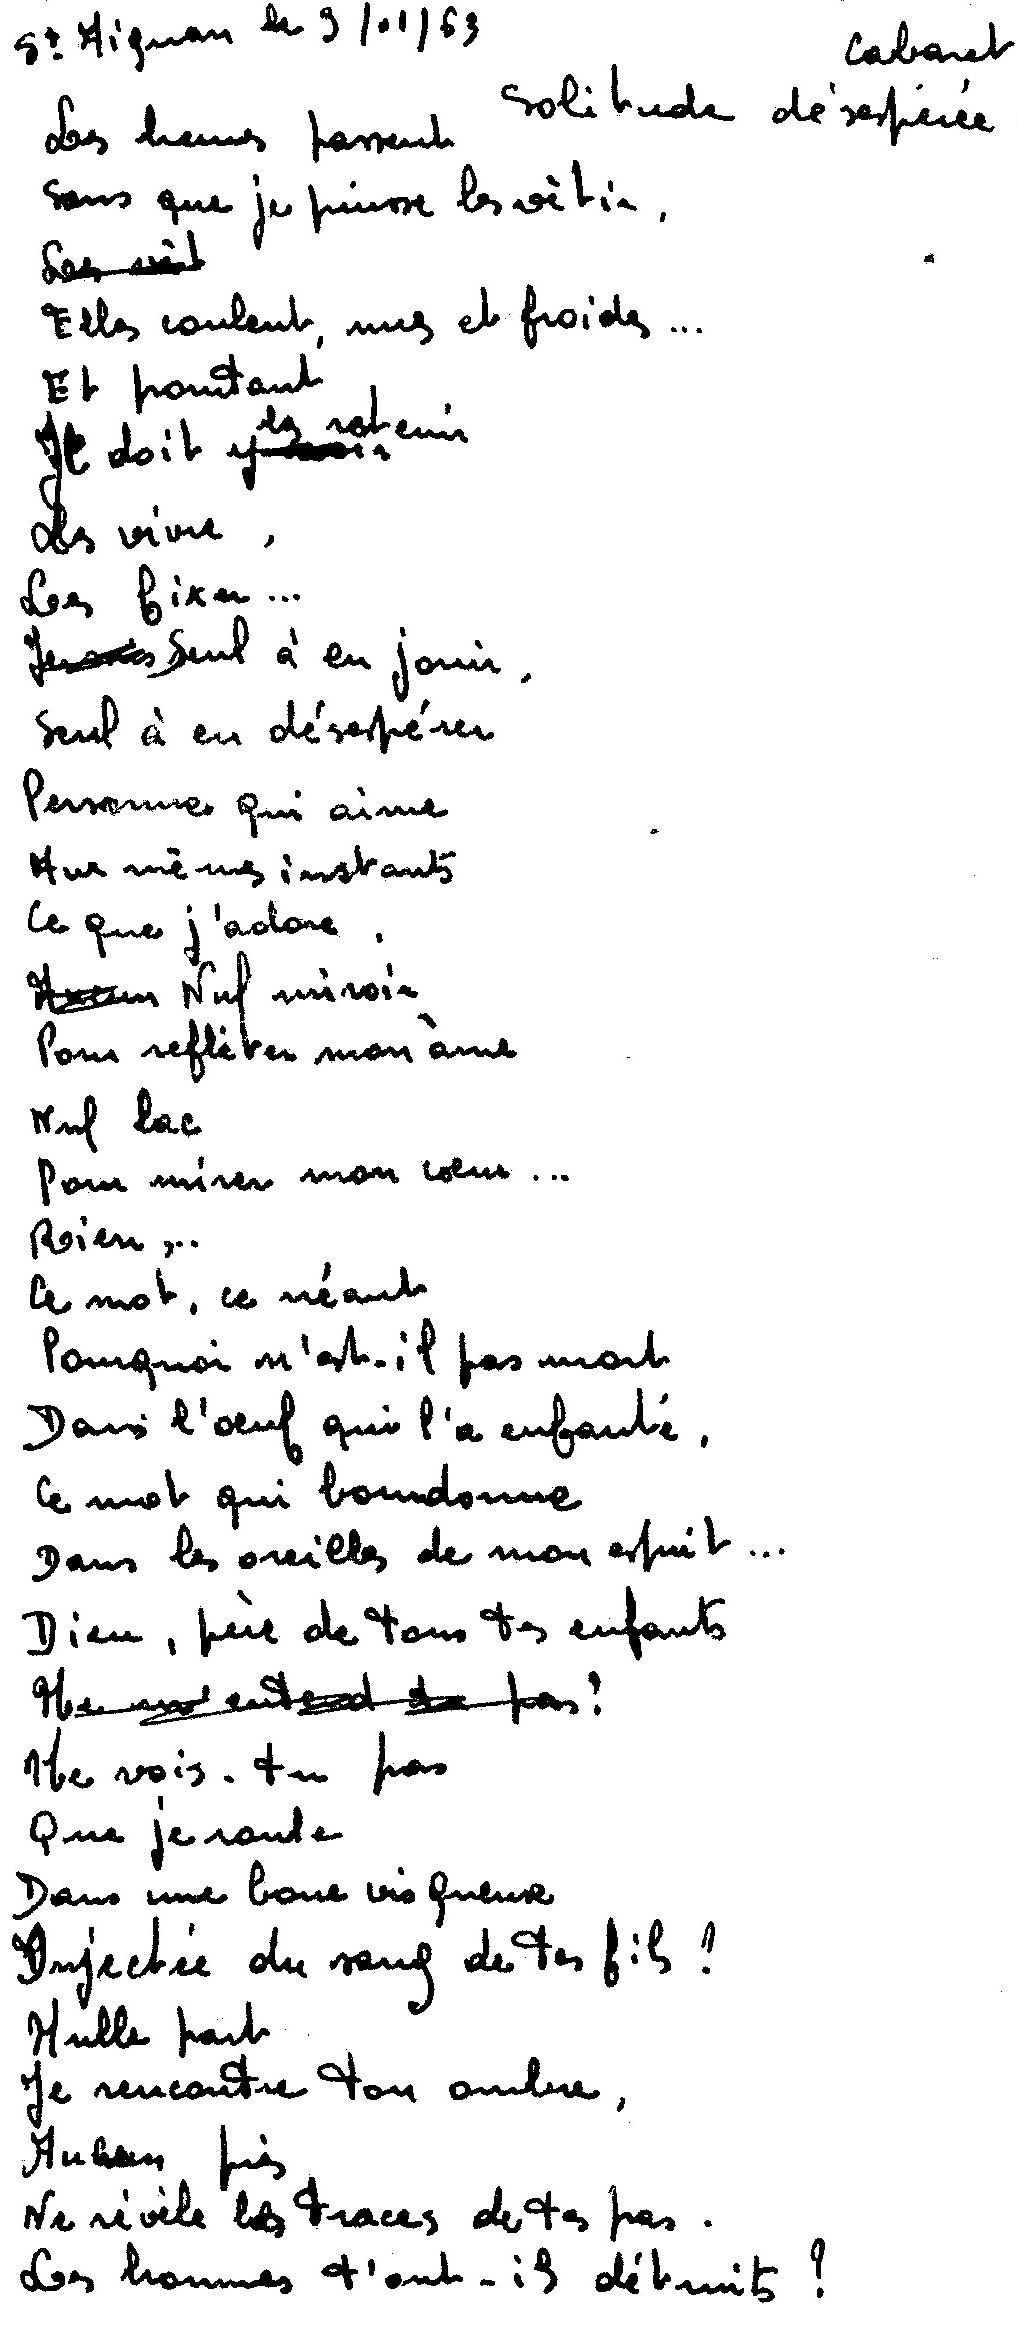 St Aignan le 9/01/63
Cabaret
Solitude désespérée
Les heures passent
Sans que je puisse les vêtir,
Les vêt
Elles coulent, nues et froides...
Et pourtant
Il doit y les retenir
Les vivre,
Les fixer...
Seul à en jouir,
Seul à en désespérer
Personne qui aime
Aux mêmes instants
Ce que j'adore,
Aucun Nul miroir
Pour reflèter mon âme
Nul lac
Pour mirer mon coeur...
Rien...
Ce mot, ce néant
Pourquoi n'est-il pas mort
Dans l'oeuf qui l'a enfanté,
Ce mot qui bourdonne
Dans les oreilles de mon esprit...
Dieu, père de tous tes enfants
Me m'entend tu pas?
Me vois-tu pas
Que je roule
Dans une boue visqueuse
Injectée du sang de tes fils?
Nulle part
Je rencontre ton ombre,
Aucun pis
Ne révèle les traces de tes pas.
Les hommes t'ont-ils détruits?